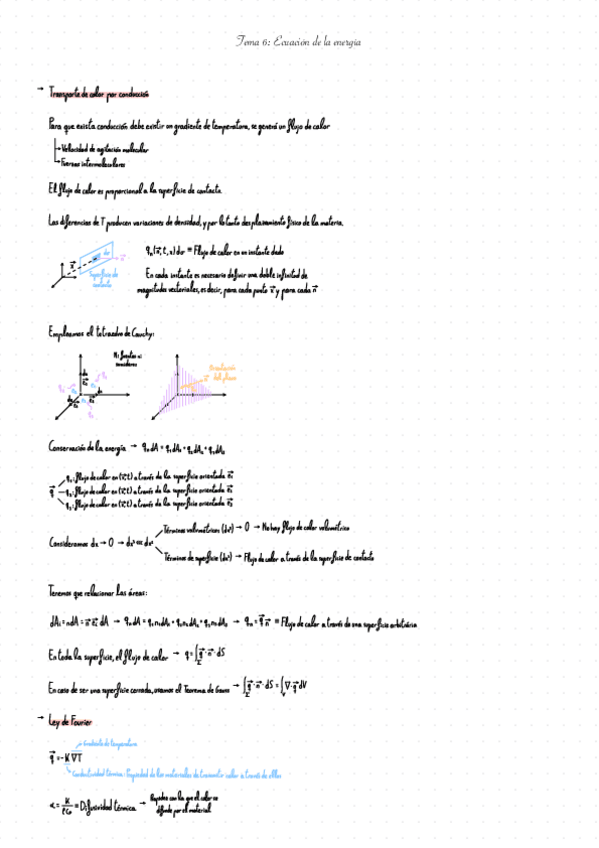 Tema 6: Ecuación de la energía
→ Transporte de calor por conducción
Para que exista conducción debe existir un gradiente de temperatura, se generá un flujo de calor
→ Velocidad de agitación molecular
→ Fuerzas intermoleculares
El flujo de calor es proporcional a la superficie de contacto
Las diferencias de T producen variaciones de densidad, y por lo tanto desplazamiento físico de la materia.
dσ
Superficie de contacto
= Flujo de calor en un instante dado
En cada instante es necesario definir una doble infinitud de
magnitudes vectoriales, es decir, para cada punto x⃗ y para cada n⃗
Empleamos el tetraedro de Cauchy:
Ni fuentes ni
sumideros
Orientación
del plano
Conservación de la energía → qₙdA = q₁dA₁ + q₂dA₂ + q₃dA₃
q₁: flujo de calor en (x⃗,t) a través de la superficie orientada e⃗₁
q⃗ q₂: flujo de calor en (x⃗,t) a través de la superficie orientada e⃗₂
q₃: flujo de calor en (x⃗,t) a través de la superficie orientada e⃗₃
Términos volumétricos (dx³) → 0 → No hay flujo de calor volumétrico
Consideramos dx → 0 → dx³ << dx²
Términos de superficie (dx²) → Flujo de calor a través de la superficie de contacto
Tenemos que relacionar las áreas:
→ qₙ = q⃗·n⃗ ≡ Flujo de calor a través de una superficie arbitraria
En toda la superficie, el flujo de calor → q = ∫ q⃗·n⃗·dS
En caso de ser una superficie cerrada, usamos el Teorema de Gauss → ∫ q⃗·n⃗·dS = ∫ ∇·q⃗ dV
→ Ley de Fourier
Gradiente de temperatura
q⃗ = -K ∇T
Conductividad térmica: Propiedad de los materiales de transmitir calor a través de ellos
α = K/ρc = Difusividad térmica → Rapidez con la que el calor se
difunde por el material